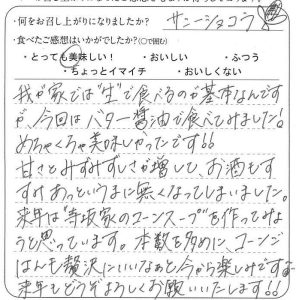 ・何をお召し上がりになりましたか?サニーショコラ
・食べたご感想はいかがでしたか?(○で囲む)
・とっても美味しい!　・おいしい　・ふつう
・ちょっとイマイチ　・おいしくない
我が家では"生"で食べるのが基本なんです
が、今回はバター醤油で食べてみました!
めちゃくちゃ美味しかったです!!
甘さとみずみずしさが増して、お酒もす
すみあっというまに無くなってしまいました。
来年は"寺坂家のコーンスープ"を作ってみよ
うと思っています。本数を多めに、コーンご
はんも贅沢にいいなぁと今から楽しみです
来年もどうぞよろしくお願いいたします!!